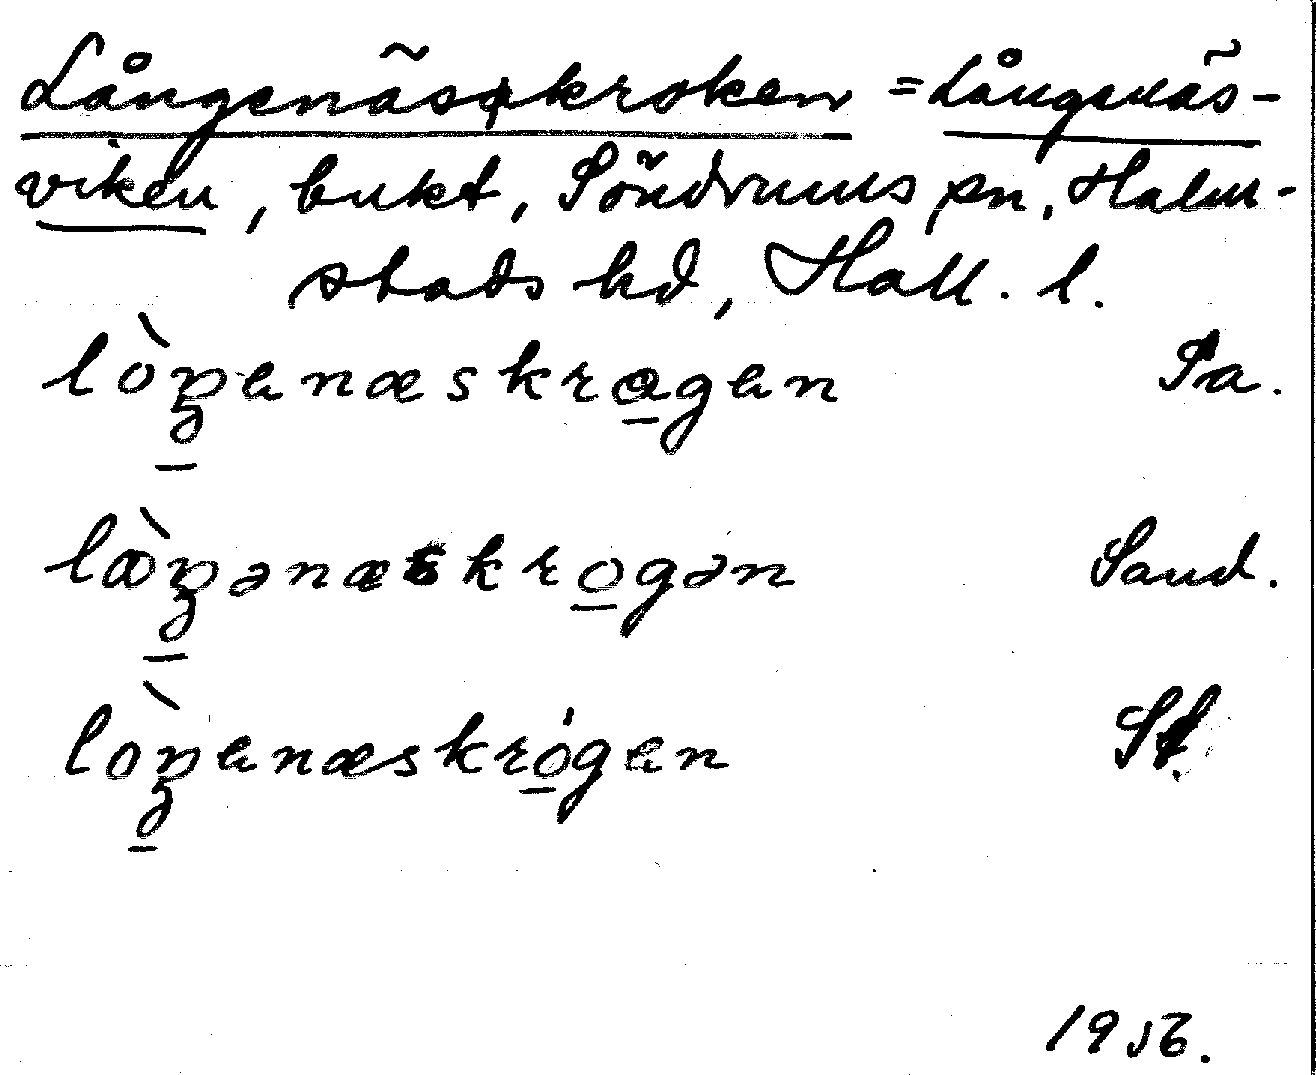 Långenäs kroken = Långenäs-
viken, bukt, Söndrums sn, Halm-
stads hd, Hall. l.
lòŋenæskrogen Pa.
lòŋənæskrogən Sand.
lòŋenæskrógen
1956.